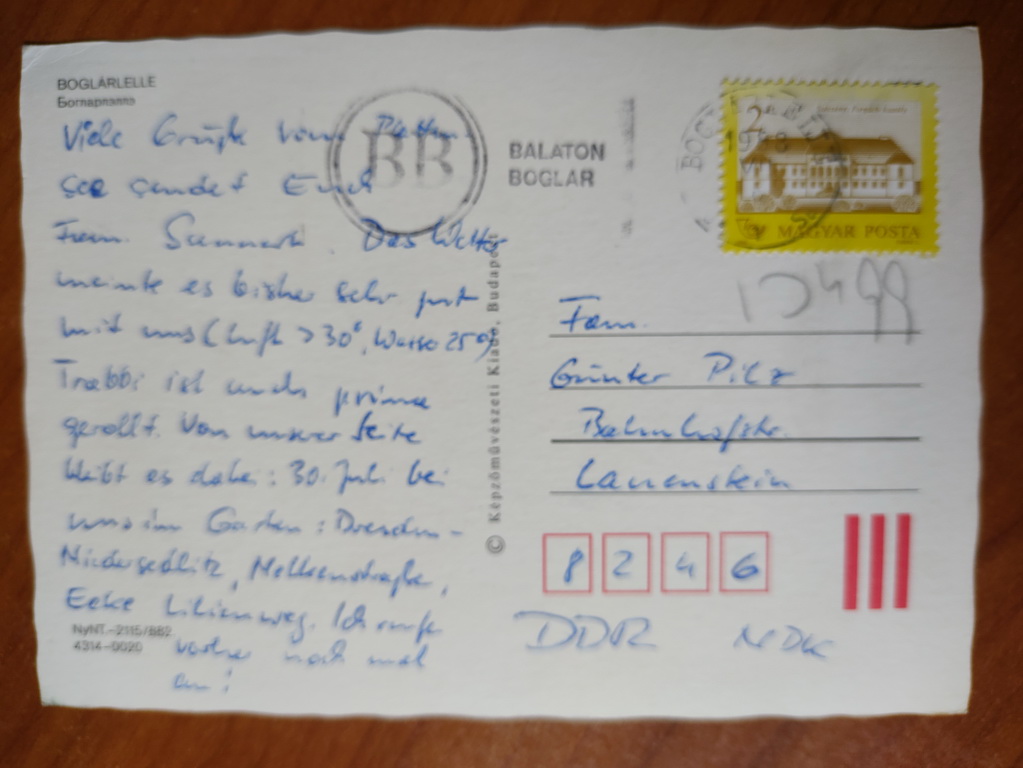 BOGLÁRLELLE
Богларлелле
Viele Grüße vom Platten-
see sendet Euch
Fam. Das Wetter
meinte es bisher sehr gut
mit uns (Luft > 30°, Wasser 25°).
Trabbi ist auch prima
gerollt. Von unserer Seite
bleibt es dabei: 30. Juli bei
uns im Garten: Dresden-
Niedersedlitz, Nelkenstraße,
Ecke Lilienweg. Ich rufe
vorher noch mal
an!
NyNT.–2115/882
4314–0020
© Képzőművészeti Kiadó, Budapest
BB
BALATON
BOGLAR
2
MAGYAR POSTA
Fam.
Günter Pilz
Bahnhofstr.
Lauenstein
8 2 4 6
DDR NDK